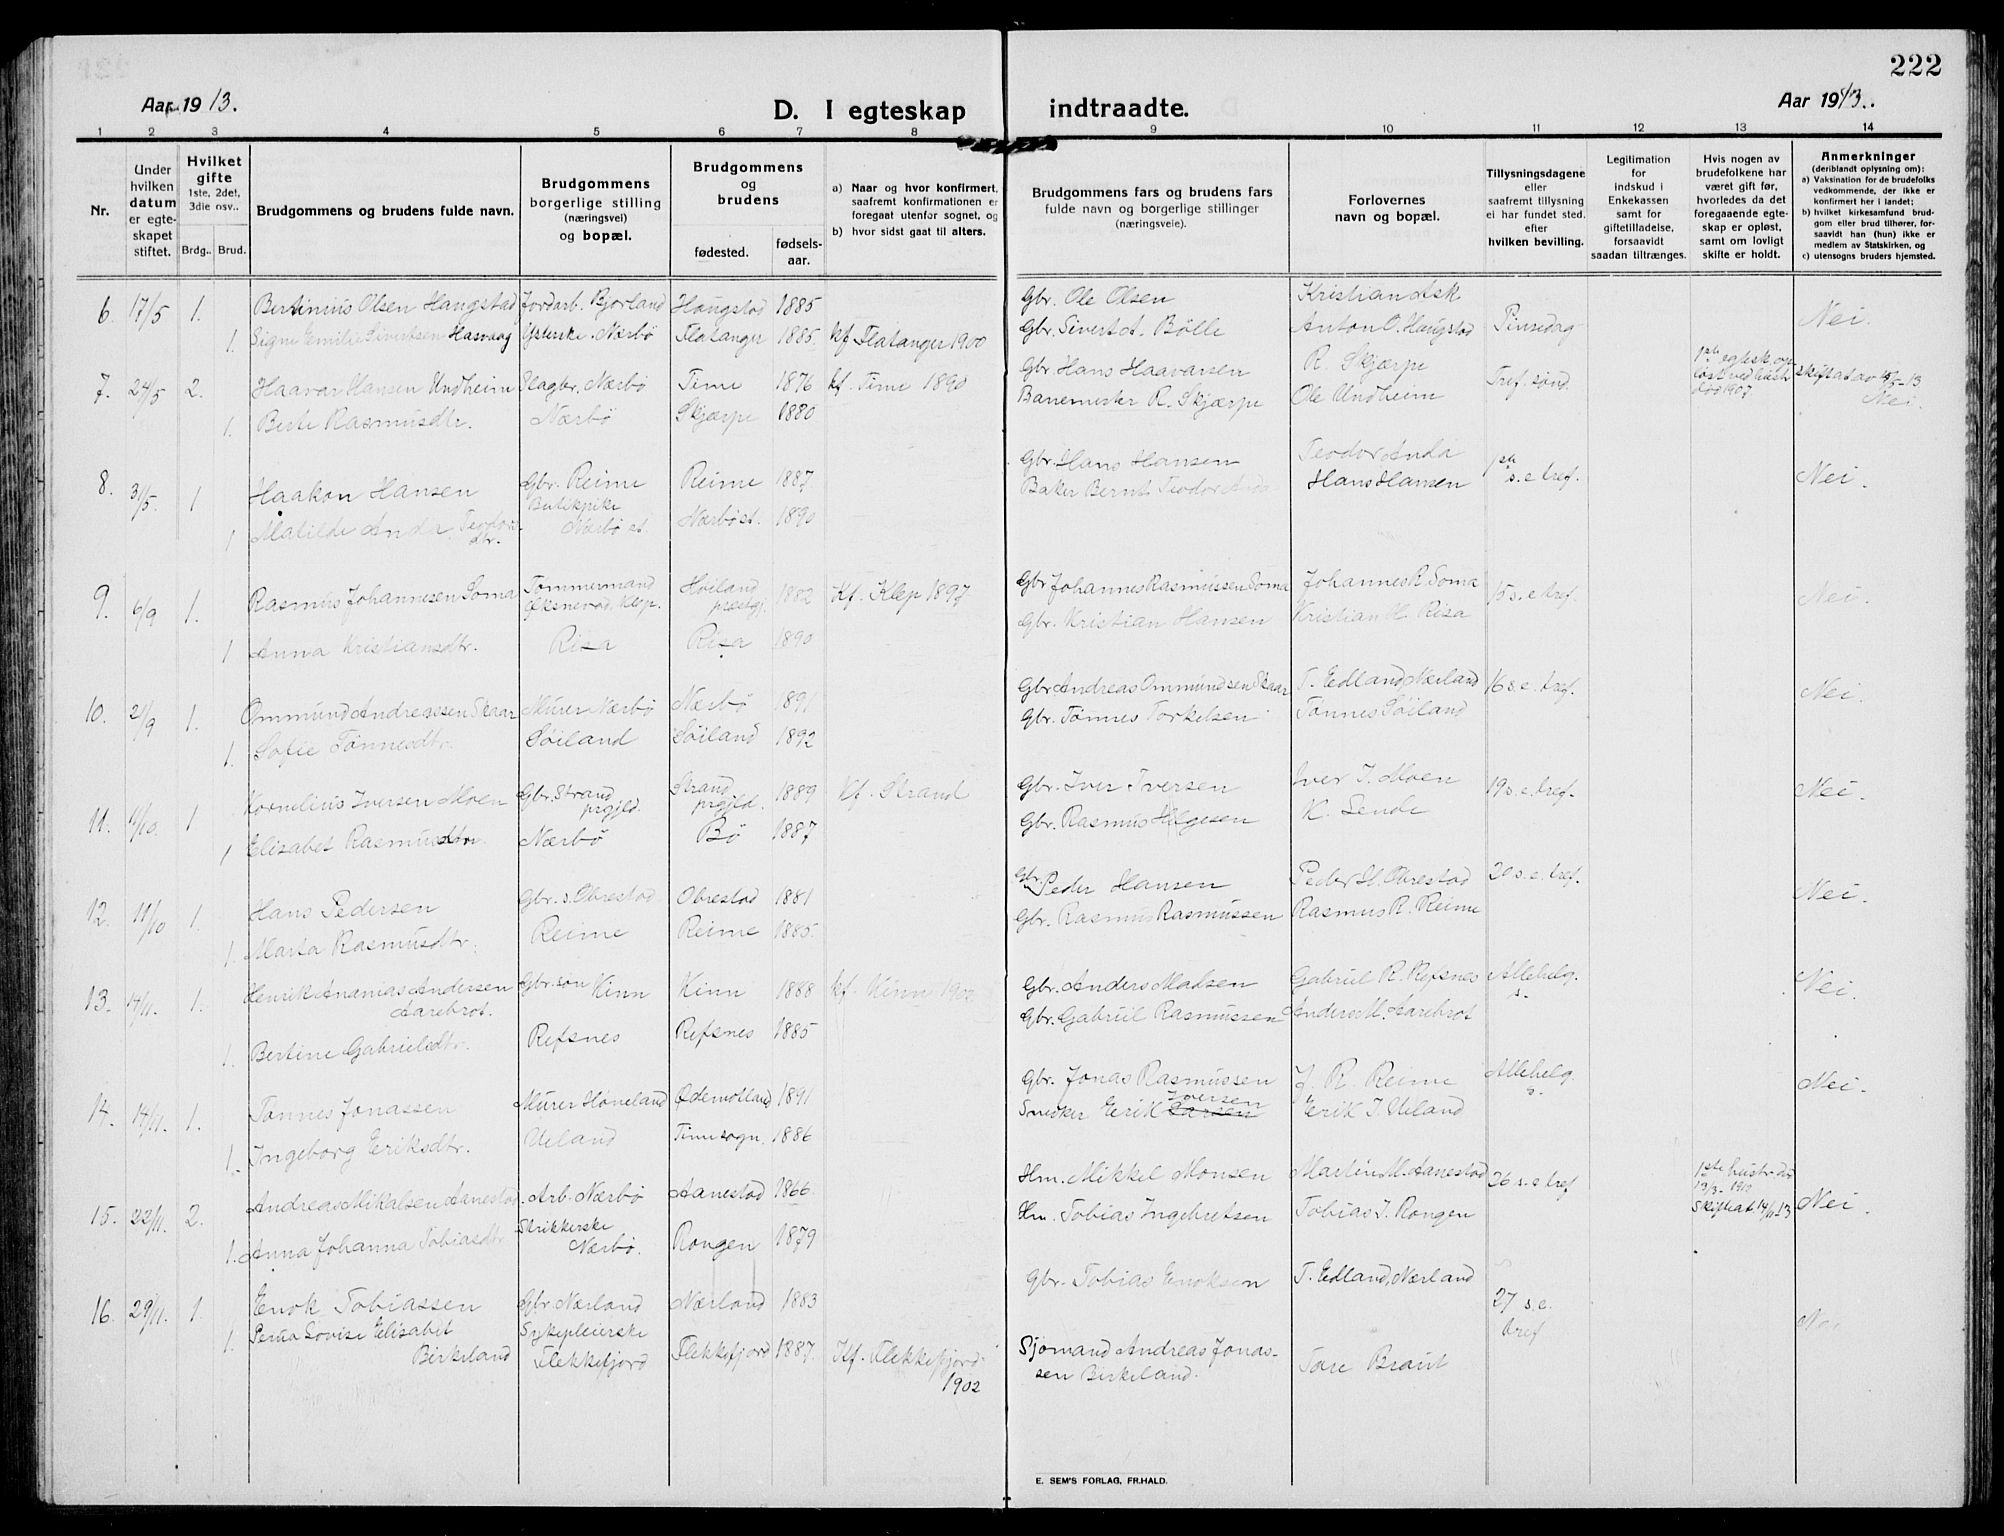 222
Aar 1913.
D. I egteskap indtraadte.
Aar 1913.
1 2 3 4 5 6 7 8 9 10 11 12 13 14
Nr.
Under hvilken datum er egteskapet stiftet.
Hvilket gifte
1ste, 2det, 3die osv..
Brdg.. Brud.
Brudgommens og brudens fulde navn.
Brudgommens borgerlige stilling (næringsvei) og bopæl.
Brudgommens og brudens
fødested.
fødsels-aar.
a) Naar og hvor konfirmert, saafremt konfirmationen er foregaat utenfor sognet, og
b) hvor sidst gaat til alters.
Brudgommens fars og brudens fars fulde navn og borgerlige stillinger (næringsveie).
Forlovernes navn og bopæl.
Tillysningsdagene eller saafremt tillysning ei har fundet sted. efter hvilken bevilling.
Legitimation for indskud i Enkekassen samt for giftetilladelse, forsaavidt saadan tiltrænges.
Hvis nogen av brudefolkene har været gift før, hvorledes da det foregaaende egteskap er opløst, samt om lovligt skifte er holdt.
Anmerkninger
(deriblandt oplysning om):
a) Vaksination for de brudefolks vedkommende, der ikke er konfirmert her i landet;
b) hvilket kirkesamfund brudgom eller brud tilhører, forsaavidt han (hun) ikke er medlem av Statskirken, og
c) utensogns bruders hjemsted.
6. 17/5 1. Bertinius Olsen Haugstad Jordarb. Bjorland Haugstad 1885 Gbr. Ole Olsen Kristian Ask Pinsedag Nei.
1. Signe Emilie Sivertsen Hasvaag Ysterske. Nærbö Flatanger 1885. kf Flatanger 1900 Gbr. Sivert A. Bölle Anton O. Haugstad
7. 24/5 2. Haavar Hansen Undheim Slagbr. Nærbö Time 1876 kf. Time 1890 Gbr Hans Haavarsen R. Skjærpe Tref. sønd. 1ste egtesk opløst ved hustr død 1907. skifteat av 15/5-13 Nei.
1. Berte Rasmusdtr. Nærbö Skjærpe 1880 Banemester R. Skjærpe Ole Undheim
8. 31/5. 1 Haakon Hansen Gbr. Reime Reime 1887 Gbr. Hans Hansen Teodor Anda 1ste s. e tref. Nei.
1 Matilde Anda Teodorsdtr. Butikpike Nærbö st. Nærbö st. 1890 Baker Bernt Teodor Anda Hans Hansen
9. 6/9 1. Rasmus Johannesen Soma Tömmermand Øksnevad, Klep. Höiland prestgj. 1882 Kf. Klep 1897 Gbr Johannes Rasmussen Soma Johannes R. Soma 15 s. e tref. Nei.
1 Anna Kristiansdtr. Risa Risa 1890 Gbr. Kristian Hansen Kristian H. Risa
10. 21/9 1. Ommund Andreassen Skaar Murer Nærbö Nærbö 1891 Gbr Andreas Ommundsen Skaar T. Edland, Nærland 16 s. e. tref. Nei.
1. Sofie Tönnesdtr. Söiland Söiland 1892 Gbr. Tönnes Torkelsen Tönnes Söiland
11. 11/10. 1 Kornelius Iversen Moen Gbr. Strand prgjld. Strand prgjld. 1889 Kf. Strand Gbr. Iver Iversen Iver I. Moen 19 s. e. tref. Nei.
1 Elisabet Rasmusdtr. Nærbö Bö 1887 Gbr. Rasmus Helgesen K. Sende
12. 11/10 1. Hans Pedersen Gbr. s. Obrestad Obrestad 1881 Gbr. Peder Hansen Peder H. Obrestad 20 s. e. tref. Nei.
1. Marta Rasmusdtr. Reime Reime 1885. Gbr. Rasmus Rasmussen Rasmus R. Reime
13. 14/11. 1. Henrik Ananias Andersen Aarebrot. Gbr. søn Kinn Kinn 1888 kf. Kinn 190 Gbr. Anders Madsen Gabriel R. Refsnes Allehelg. s. Nei.
1. Bertine Gabrielsdtr. Refsnes Refsnes 1885 Gbr. Gabriel Rasmussen Anders M. Aarebrot
14. 14/11. 1. Tönnes Jonassen Murer Höneland Ødemotland 1891 Gbr. Jonas Rasmussen J. R. Reime Allehelg. s. Nei.
1. Ingeborg Eriksdtr. Ueland Time sogn. 1886 Snedker Erik Iversen Erik I. Ueland
15. 22/11. 2. Andreas Mikalsen Aanestad Arb. Nærbö Aanestad 1866 Hm. Mikkel Monsen Martin M. Aanestad 26 s. e tref 1ste hustr. dø 13/3-1912 Skifteat. 14/11 13 Nei.
1. Anna Johanna Tobiasdtr Strikkerske Nærbö. Rongen 1879 Hm. Tobias Ingebretsen Tobias I. Rongen
16. 29/11. 1. Enok Tobiassen Gbr. Nærland Nærland 1883 Gbr. Tobias Enoksen T. Edland, Nærland 27 s. e. tref
1. Petra Lovise Elisabet Birkeland Sykepleierske Flekkefjord Flekkefjord 1887. Kf. Flekkefjord 1902 Sjömand Andreas Jonassen Birkeland. Tore Braut
E. SEM'S FORLAG, FR.HALD.